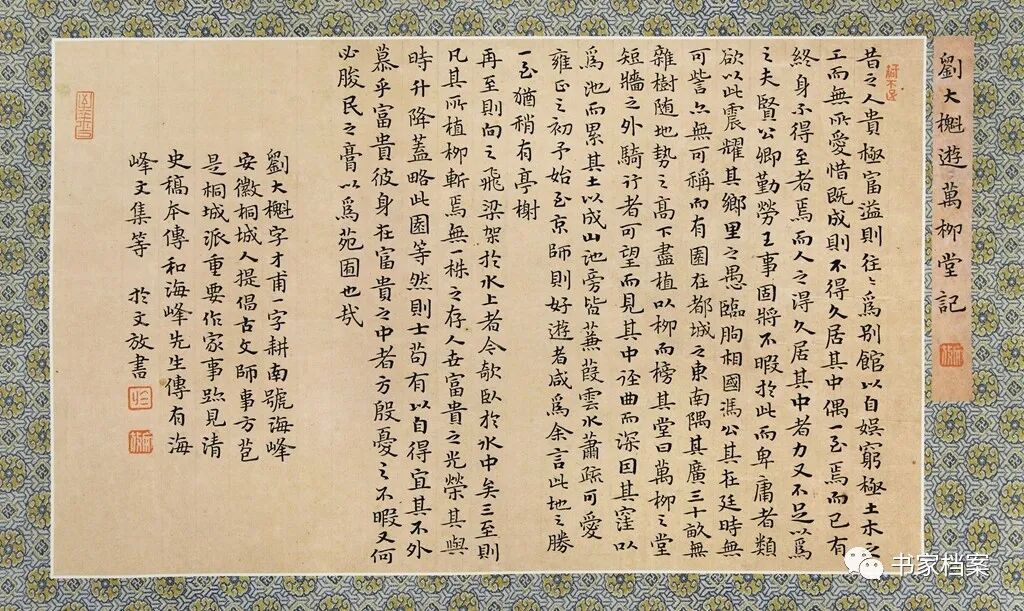 劉大櫆遊萬柳堂記
昔之人貴極富溢則往〻爲別館以自娛窮極土木之
工而無所愛惜既成則不得久居其中偶一至焉而已有
終身不得至者焉而人之得久居其中者力又不足以爲
之夫賢公卿勤勞王事固將不暇於此而卑庸者類
欲以此震耀其鄉里之愚臨朐相國馮公其在廷時無
可訾亦無可稱而有園在都城之東南隅其廣三十畝無
雜樹随地勢之高下盡植以柳而榜其堂曰萬柳之堂
短牆之外騎行者可望而見其中徑曲而深因其窪以
爲池而累其土以成山池旁皆蒹葭雲水蕭疏可愛
雍正之初予始至京師則好遊者咸爲余言此地之勝
一至猶稍有亭榭
再至則向之飛梁架於水上者今欹臥於水中矣三至則
凡其所植柳斬焉無一株之存人世富貴之光榮其與
時升降蓋略此園等然則士苟有以自得宜其不外
慕乎富貴彼身在富貴之中者方殷憂之不暇又何
必朘民之膏以爲苑囿也哉
劉大櫆字才甫一字耕南號海峰
安徽桐城人提倡古文師事方苞
是桐城派重要作家事跡見清
史稿本傳和海峰先生傳有海
峰文集等 於文放書
书家档案